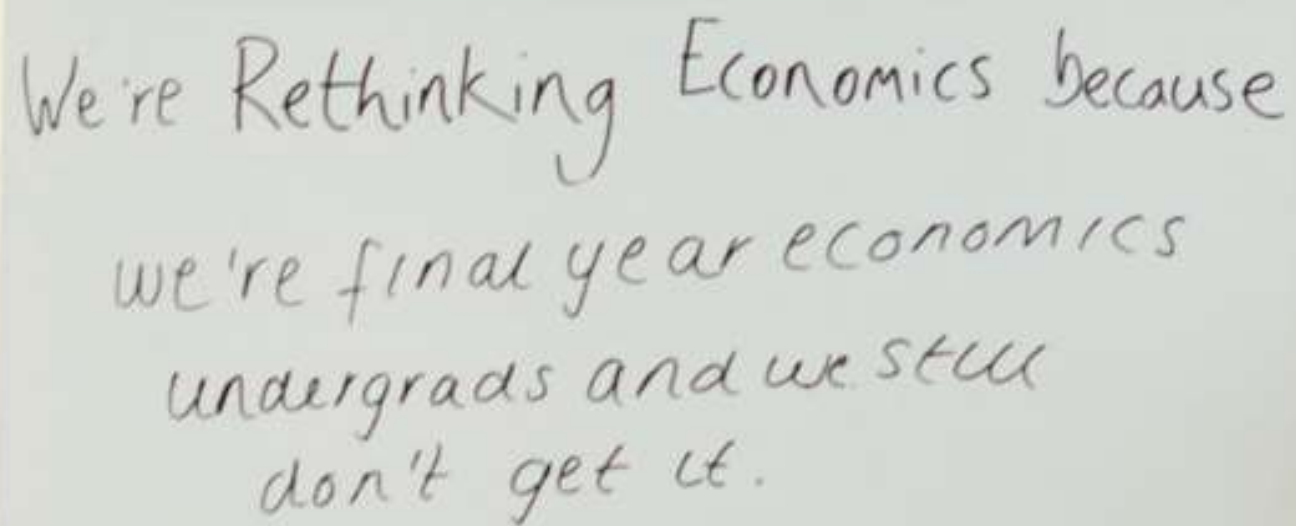 We're Rethinking Economics because
we're final year economics
undergrads and we still
don't get it.